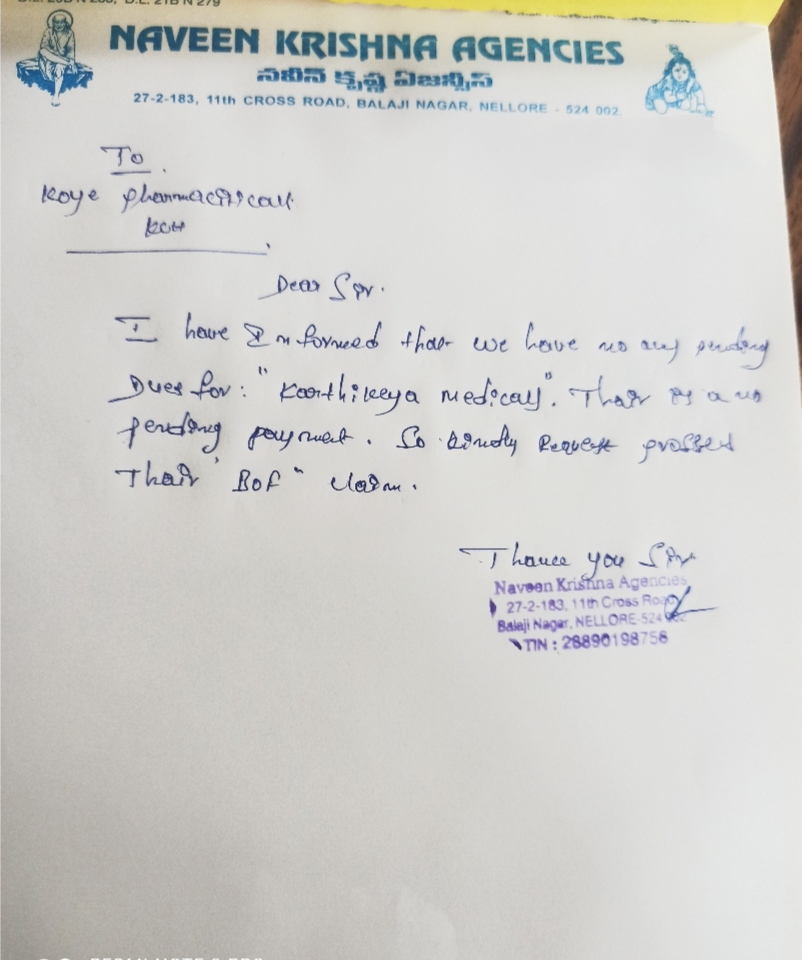 NAVEEN KRISHNA AGENCIES
నవీన్ కృష్ణ ఏజన్సీస్
27-2-183, 11th CROSS ROAD, BALAJI NAGAR, NELLORE - 524 002.
To
Koye
Dear Sir.
I have Informed that we have no any pending
Dues for: "Karthikeya medicals". Thair is a no
pending payment. So kindly Request prosses
Thair "BOF" Claim.
Thance you Sir
Naveen Krishna Agencies
27-2-183, 11th Cross Road
Balaji Nagar, NELLORE-524
TIN : 28890198756